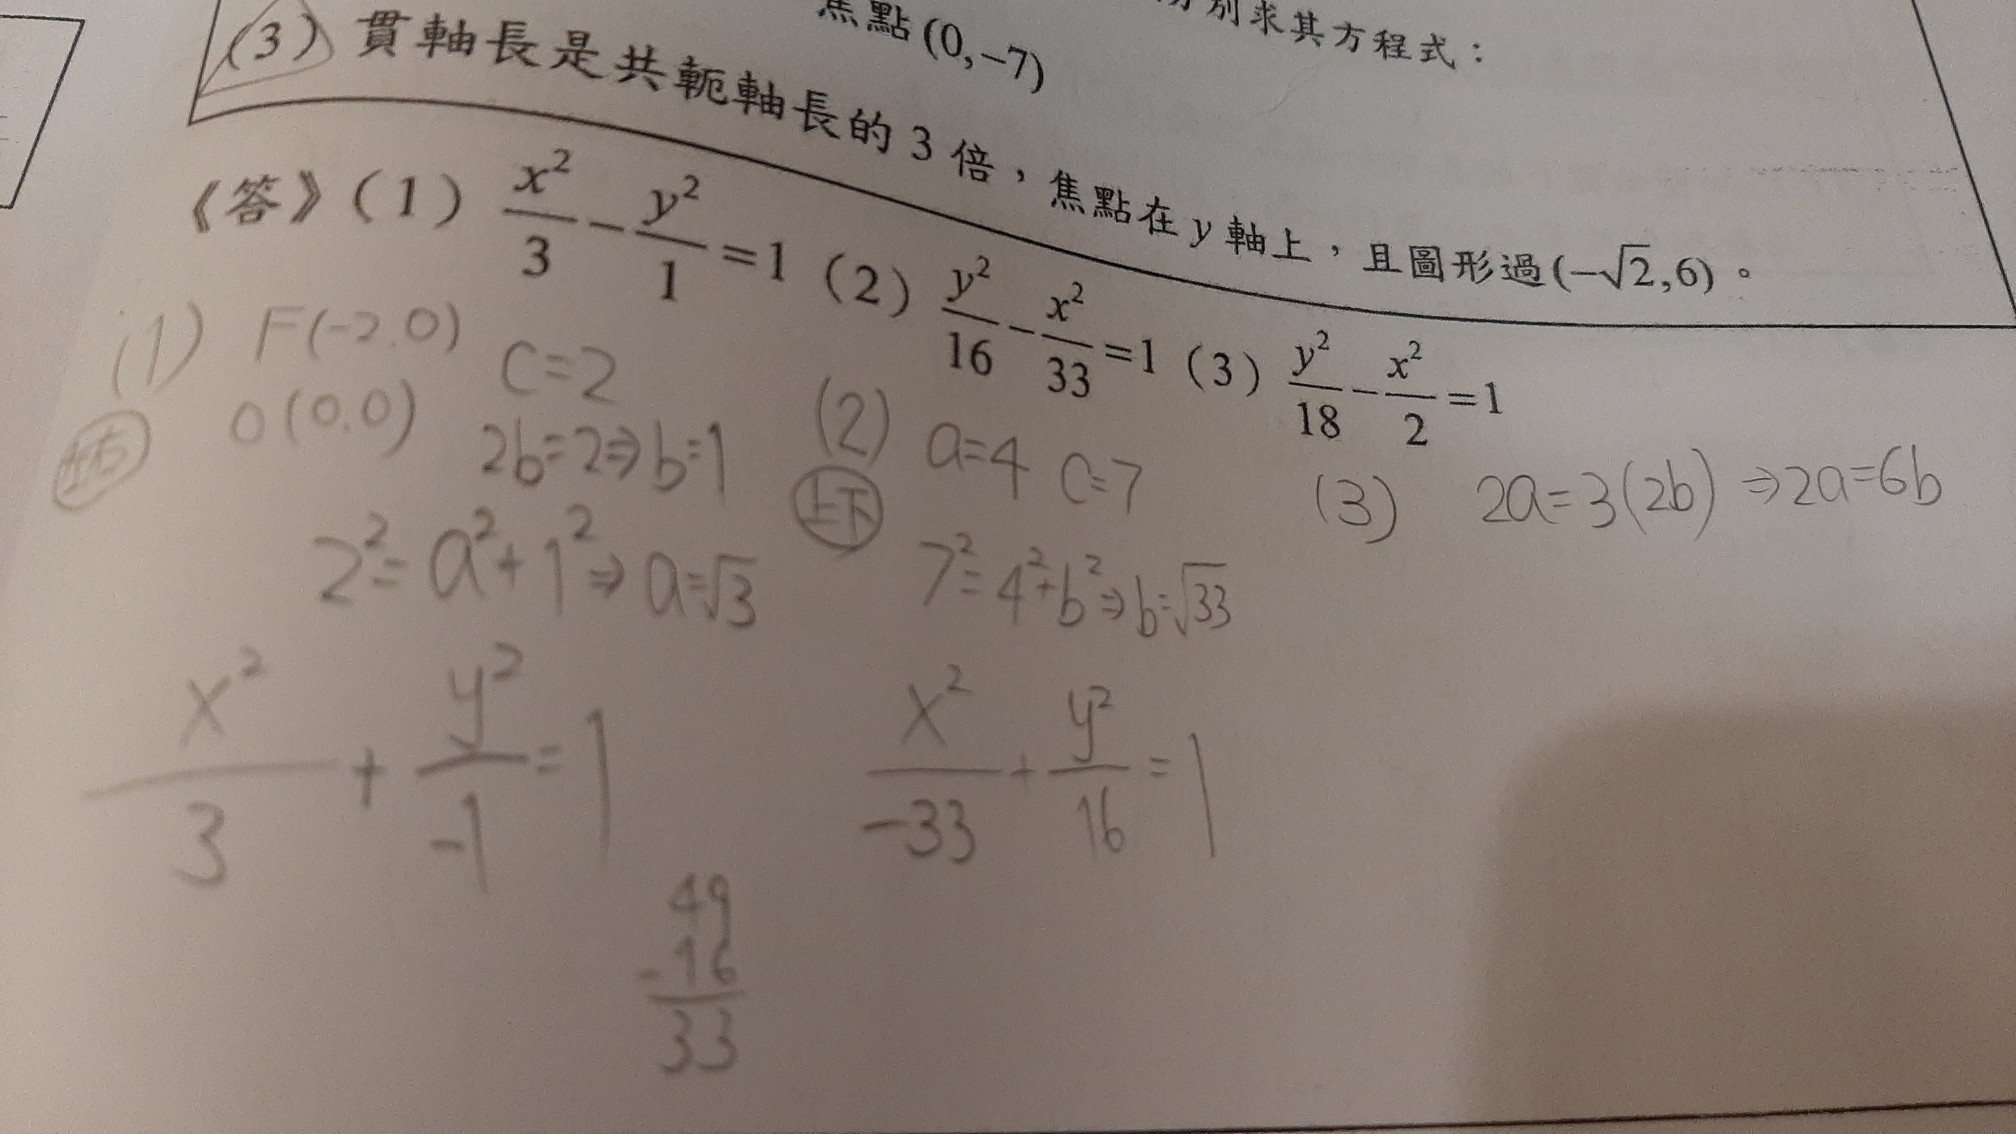 別求其方程式：
焦點(0,−7)
(3) 貫軸長是共軛軸長的 3 倍，焦點在 y 軸上，且圖形過(−√2,6)。
《答》(1) x²/3 − y²/1 = 1 (2) y²/16 − x²/33 = 1 (3) y²/18 − x²/2 = 1
(1) F(-2,0) C=2
O(0,0) 2b=2⇒b=1
2²=a²+1²⇒a=√3
x²/3 + y²/-1 = 1
(2) a=4 C=7
上下
7²=4²+b²⇒b=√33
x²/-33 + y²/16 = 1
49
-16
33
(3) 2a=3(2b)⇒2a=6b